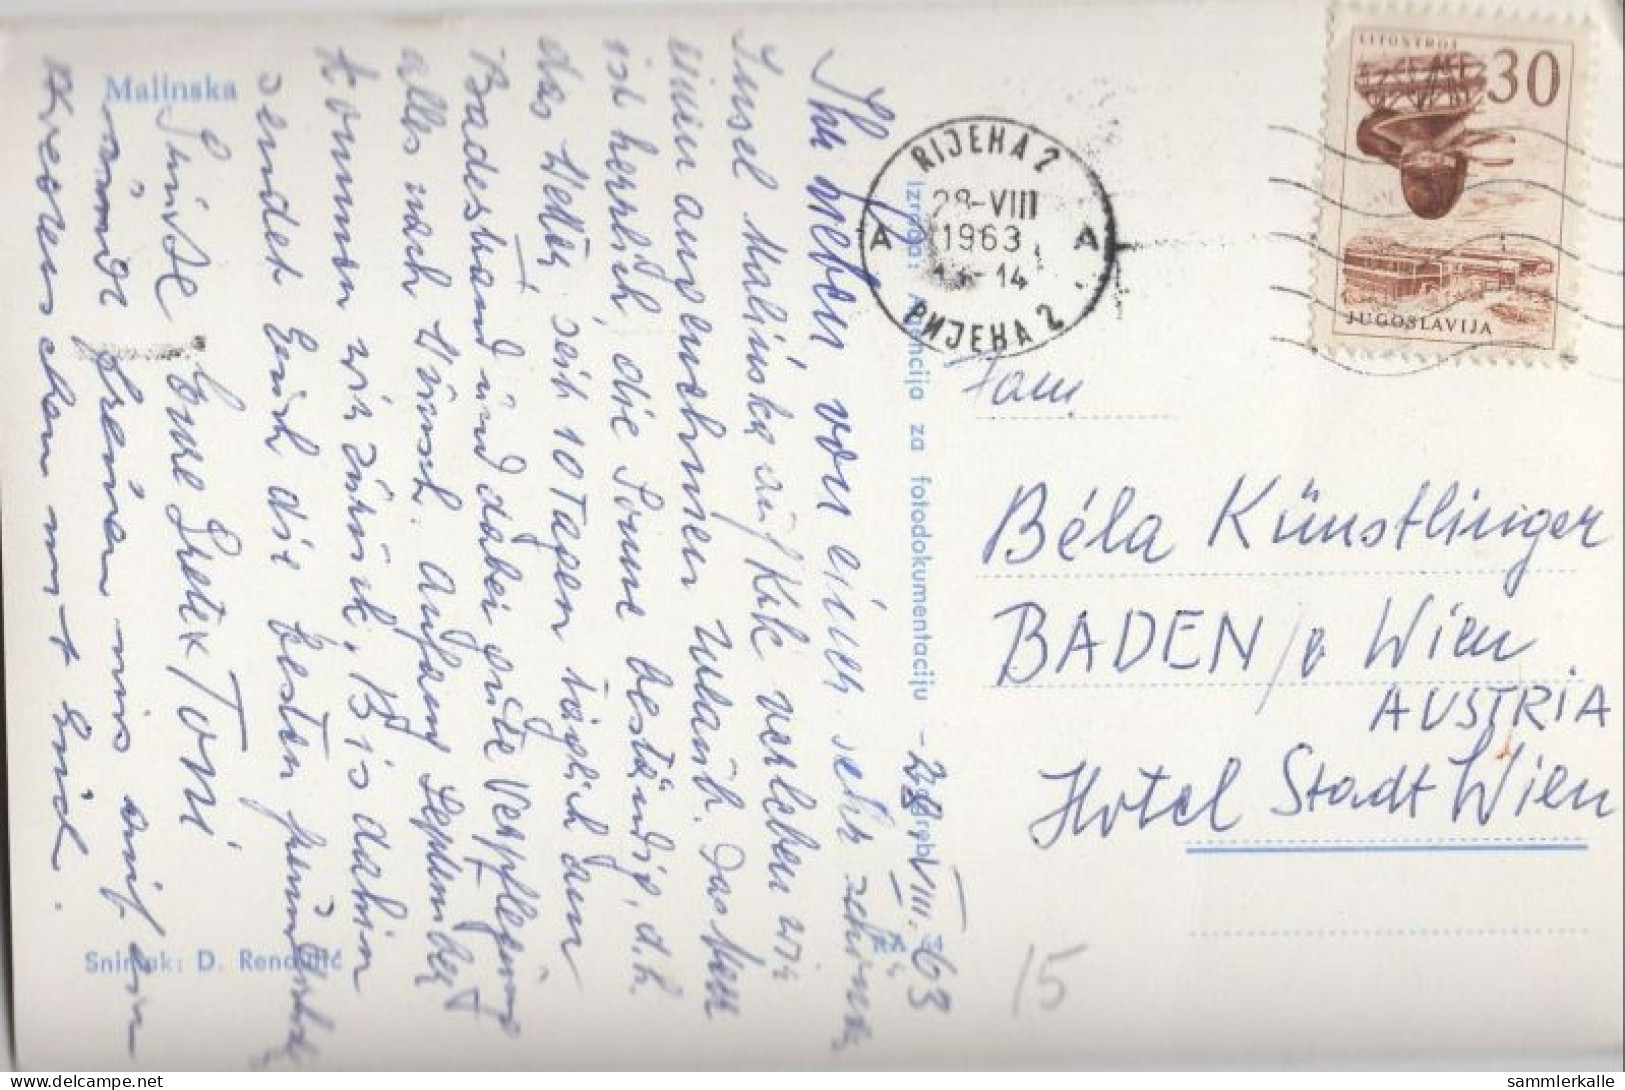 Malinska
28. VIII. 63
Ihr Lieben von einer sehr schönen
Insel Malinska auf Krk verleben wir
einen angenehmen Urlaub. Das
ist herrlich, die Sonne beständig, d.h.
das Wetter seit 10 Tagen täglich am
Badestrand und dabei gute Verpflegung
alles nach Wunsch. Anfang September
kommen wir zurück, Bis dahin
sendet Euch die besten
Grüsse Eure Grete + Toni
uns auf ein
mit Euch.
Snimak: D. Rendulić
Izrađuje: Agencija za fotodokumentaciju - Zagreb
RA 64
RIJEKA 2
28-VIII
1963
14
A A
РИЈЕКА 2
LITOSTROJ
30
JUGOSLAVIJA
Fam.
Béla Künstlinger
BADEN / b Wien
AUSTRIA
Hotel Stadt Wien
15
sammlerkalle
www.delcampe.net